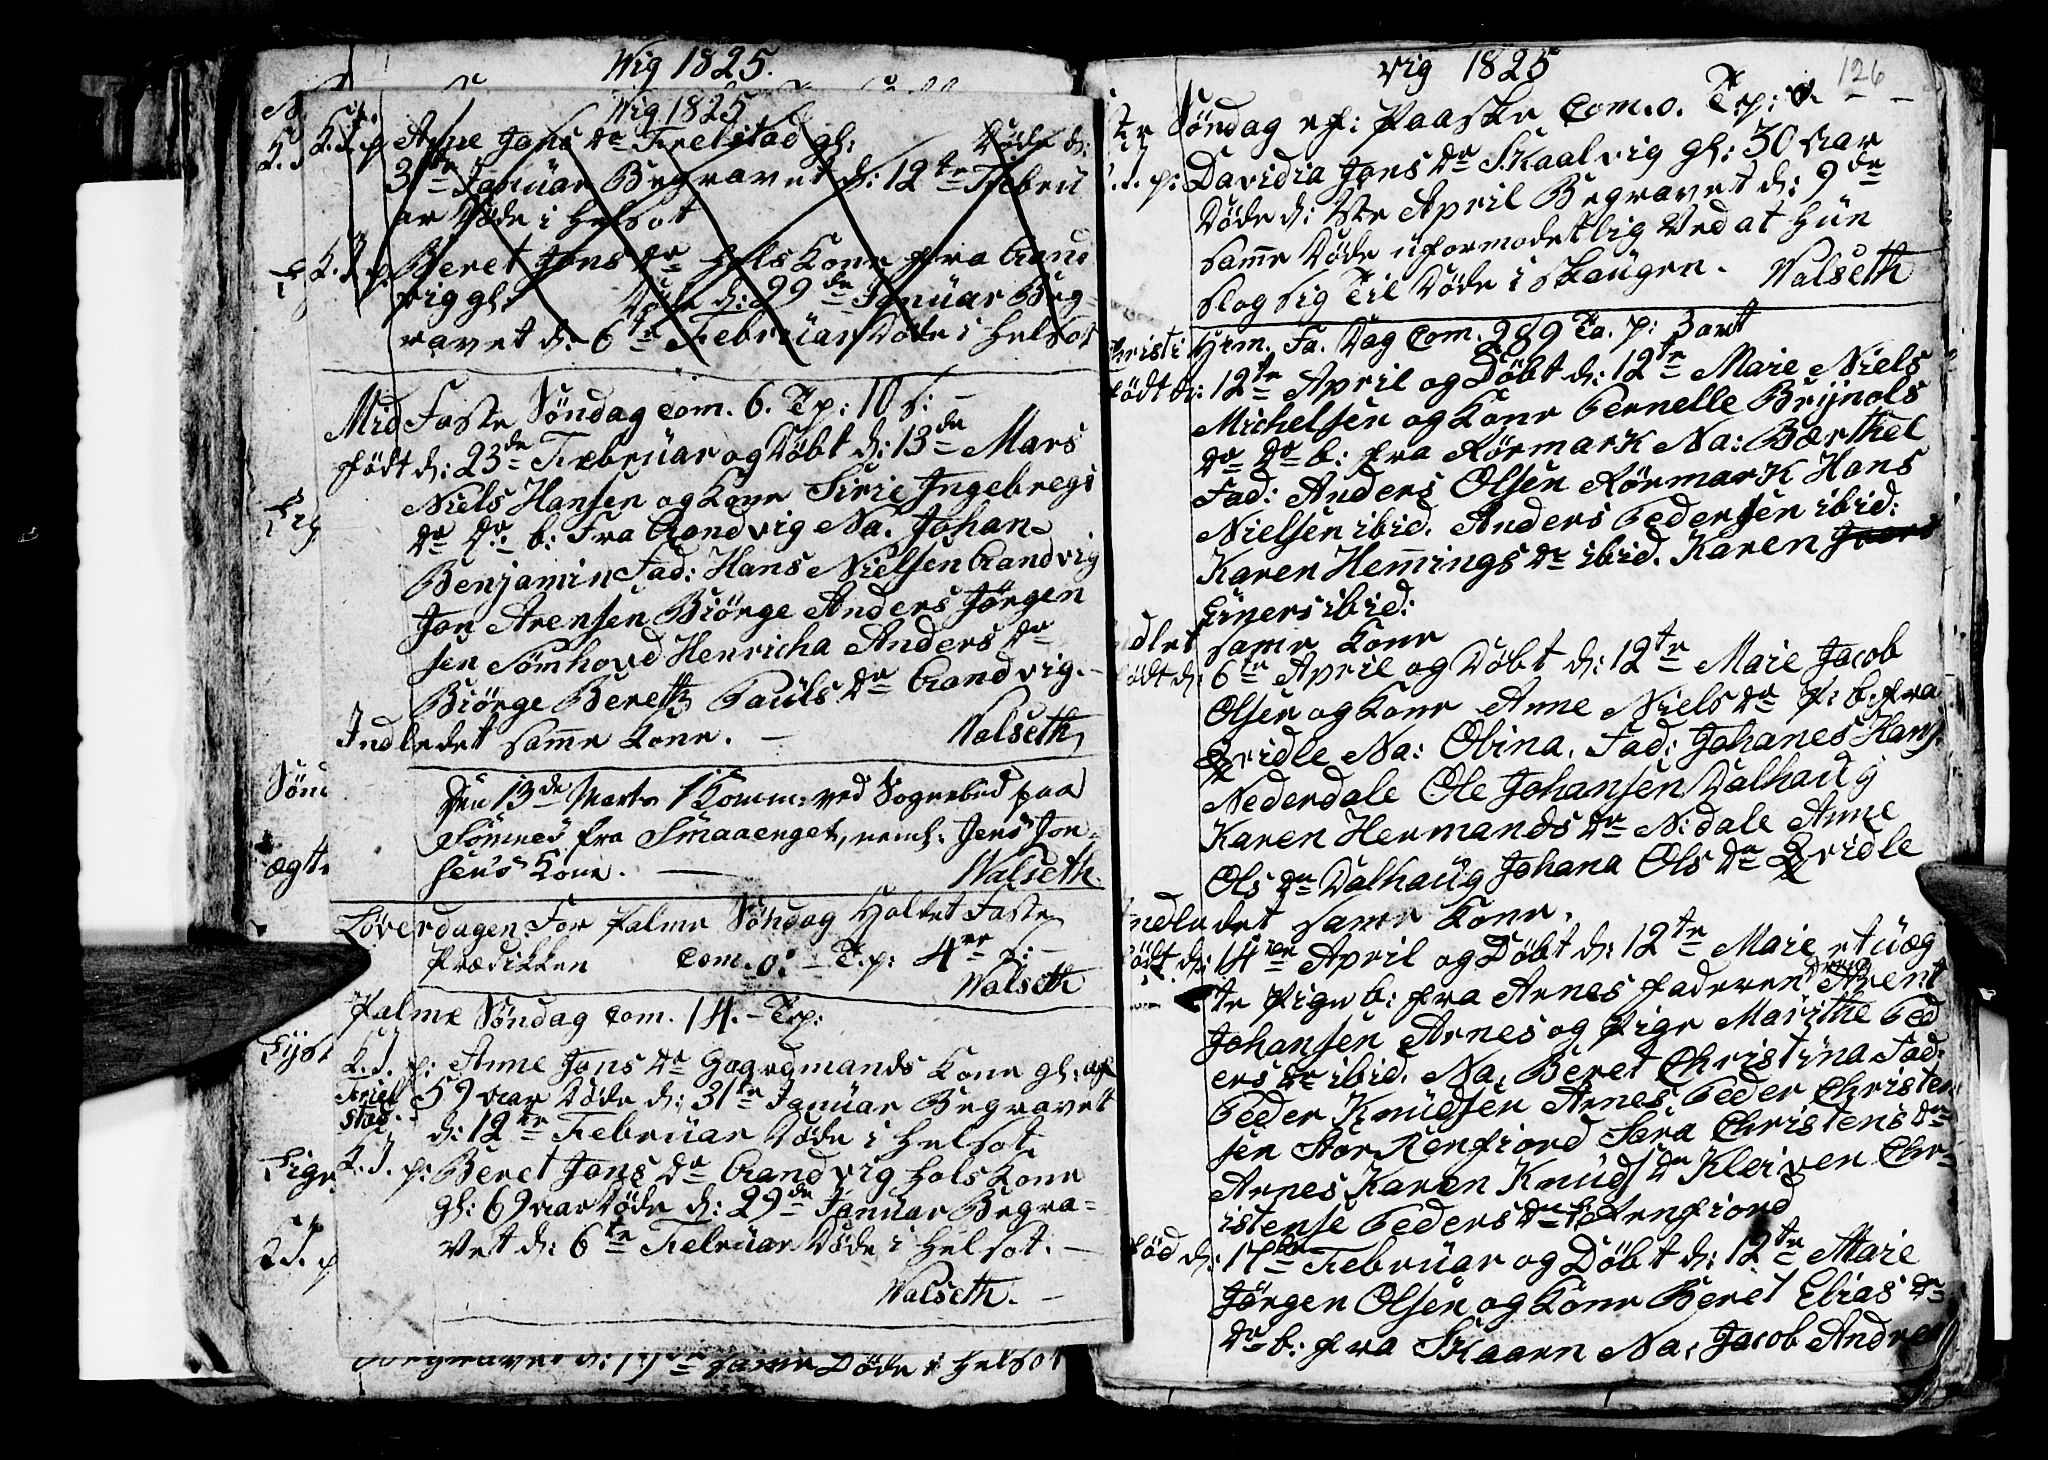 Wig 1825.
Wig 1825
K. J. p. Anne Jons dr Frelstad gl: Døde d:
31te Januar Begravet d: 12te Febru
ar Døde i Helsot
K. J. p. Beret Jons dr Hols Kone fra Aand
vig gl: Døde d: 29de Januar Beg-
ravet d: 6te Februar Døde i Helsot
Mid Faste Søndag Com. 6. Tp: 10 s: -
Født d: 23de Februar og Døbt d: 13de Mars
Niels Hansen og Kone Sirie Ingebregs
dr Dr b: Fra Aandvig Na. Johan-
Benjamin Fad: Hans Nielsen Aandvig
Jon Arensen Biørge Anders Jørgen
sen Sømhovd Henricha Anders dr
Biørge Bereth Pauls dr Aandvig. -
Indledet samme Kone. - Walseth
Den 13de Marts 1 Komm. ved Sognebud paa
Sømnes fra Smaaenget, neml: Jens Jon-
sens Kone. - Walseth.
Løverdagen For Palme Søndag Holdet Faste
Prædikken Com. 0: - T.p: 4re s: -
Walseth
Palme Søndag Com. 14. - Tp:
K. J. p: Anne Jons dr Gaardmands Kone gl:
Friel
stad. 59 Aar Døde d: 31te Januar Begravet
d: 12te Februar Døde i Helsot
K. J. p: Beret Jons dr Aandvig Hols Kone
gl: 69 Aar Døde d: 29de Januar Begra-
vet d: 6te Februar Døde i Helsot. -
Walseth. -
Begravet d: 19de samme Døde i Helsot
Vig 1825
126
Søndag ef: Paaske Com. 0. Tp: 0. - -
J. p: Davidia Jons dr Skaalvig gl: 30 Aar
Døde d: 1ste April Begravet d: 9de
samme Døde uformodetlig Ved at Hun
slog sig Til Døde i skaugen. Walseth
Christi Hem. Fa. Dag Com. 289 Ta. p: 3 ort
født d: 12te April og Døbt d: 12te Maie Niels
Michelsen og Kone Pernelle Brynols
dr Dr b: fra Rørmark Na: Bærthel
Fad: Anders Olsen Rørmark Hans
Nielsen ibid. Anders Pedersen ibid:
Karen Hemmings dr ibid. Karen
Einers ibid:
Indlet samme Kone
født d: 6te April og Døbt d: 12te Maie Jacob
Olsen og Kone Anne Niels dr P: b: fra
Qvidle Na: Obina. Fad: Johanes Hans.
Nederdale Ole Johansen Dalhaug
Karen Hermands dr N: dale Anne
Ols dr Dalhaug Johana Ols dr Qvidle
Indledet samme Kone.
født d: 14de April og Døbt d: 12te Maie et uæg
te Pige b: fra Arnes faderen Arent
Johansen Arnes og Pige Marithe Ped
ers dr ibid. Na. Beret Christina Fad:
Peder Knudsen Arnes Peder Christen
sen Stor Renfiord Sara Christens dr
Arnes Karen Knuds dr Kleiven Chr-
istense Peders dr St: Renfiord
fød d: 17de Februar og Døbt d: 12te Maie
Jørgen Olsen og Kone Beret Elias dr
Dr b: fra Skaarn Na: Jacob Andrea